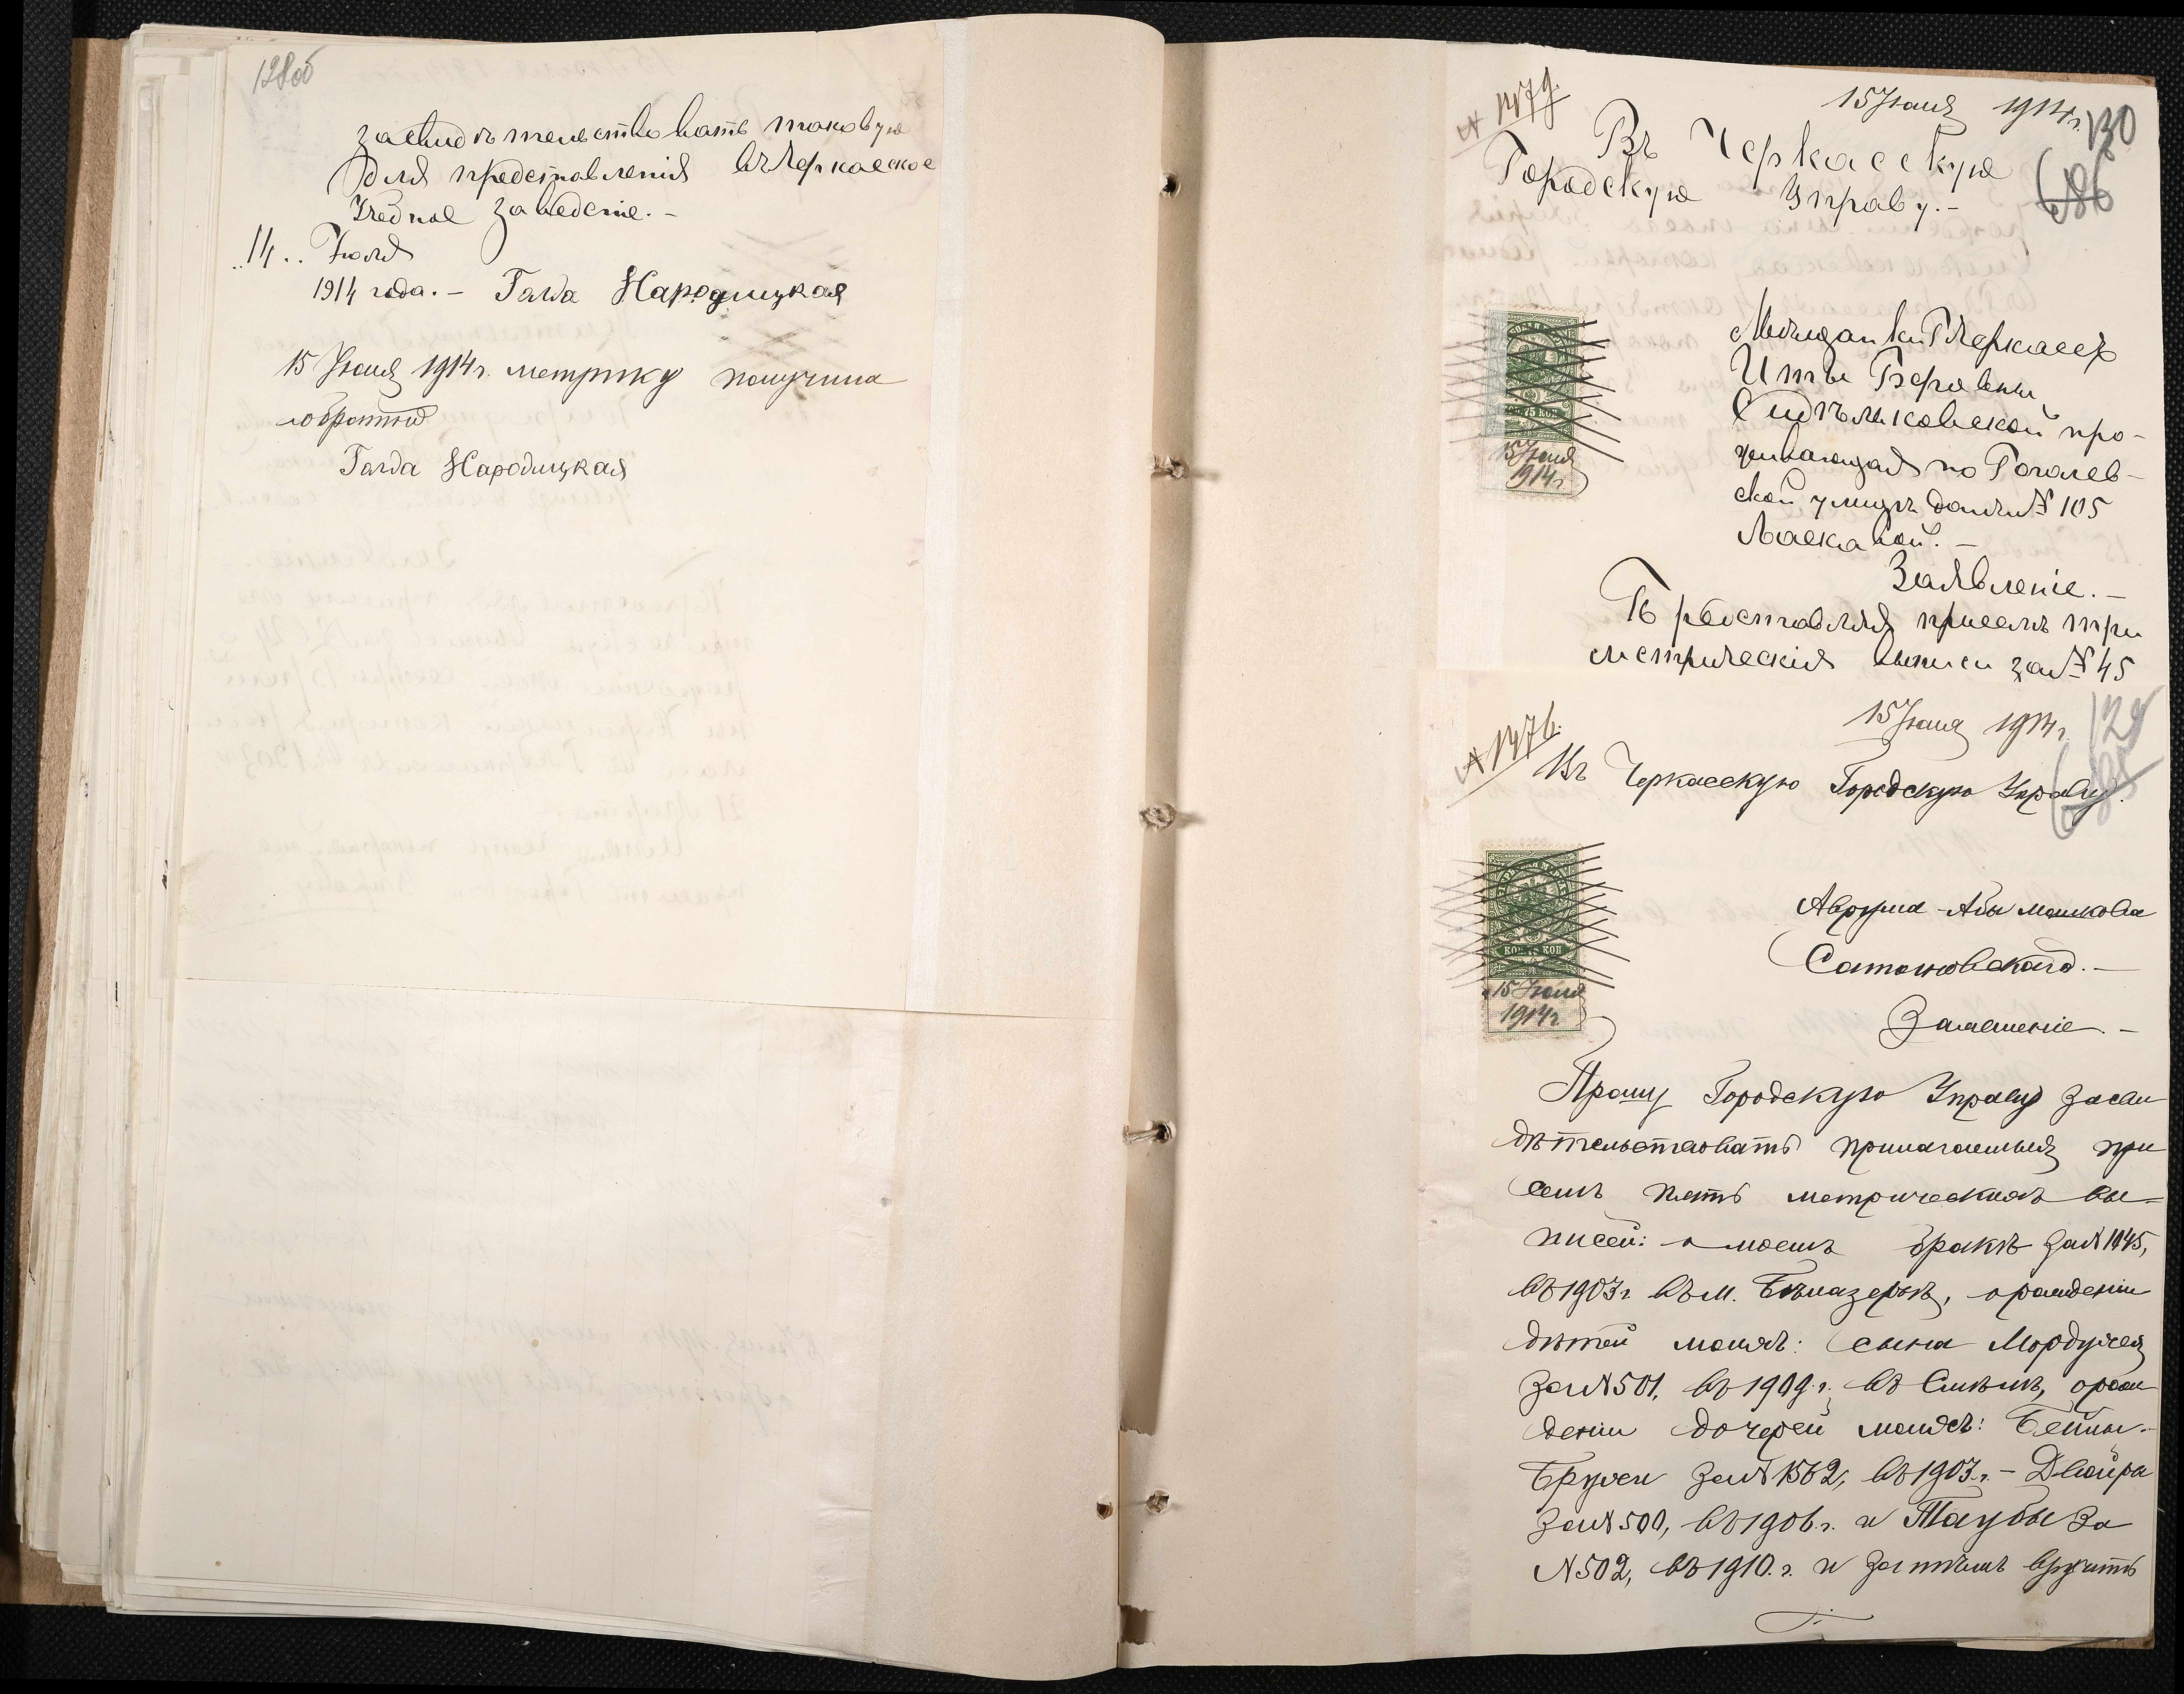 128об
засвидѣтельствовать таковую
для представленія въ Черкасское
Учебное заведеніе. -
14 .. Іюля
1914 года. - Голда Народицкая
15 Іюля 1914 г. метрику получила
обратно
Голда Народицкая
№ 1479.
15 Іюля 1914 г.
130
686
Въ Черкасскую
Городскую Управу. -
75 КОП
15 Іюля
1914 г.
Мѣщанки г. Черкассъ
Итты Берковны
Смѣлянской про-
живающая по Гоголев-
ской улицѣ домъ № 105
Заявленіе. -
Представляя присемъ три
метрическія выписи за № 45
№ 1476.
15 Іюля 1914 г.
129
685
Въ Черкасскую Городскую Управу.
КОП. 75 КОП
15 Іюля
1914 г
Аврума-Абы Мошкова
Сатановскаго. -
Заявленіе. -
Прошу Городскую Управу засви
дѣтельствовать прилагаемыя при
семъ пять метрическихъ вы-
писей: о моемъ бракѣ за № 1145,
въ 1903 г. въ м. Бѣлазерьѣ, о рожденіи
дѣтей моихъ: сына Мордухая
за № 501, въ 1909. г. въ Смѣлѣ, о рож
деніи дочерей моихъ: Бейлы-
Брухи за № 1562, въ 1903. г. - Двойра
за № 500, въ 1906. г. и Таубы за
№ 502, въ 1910. г. и затѣмъ вручить